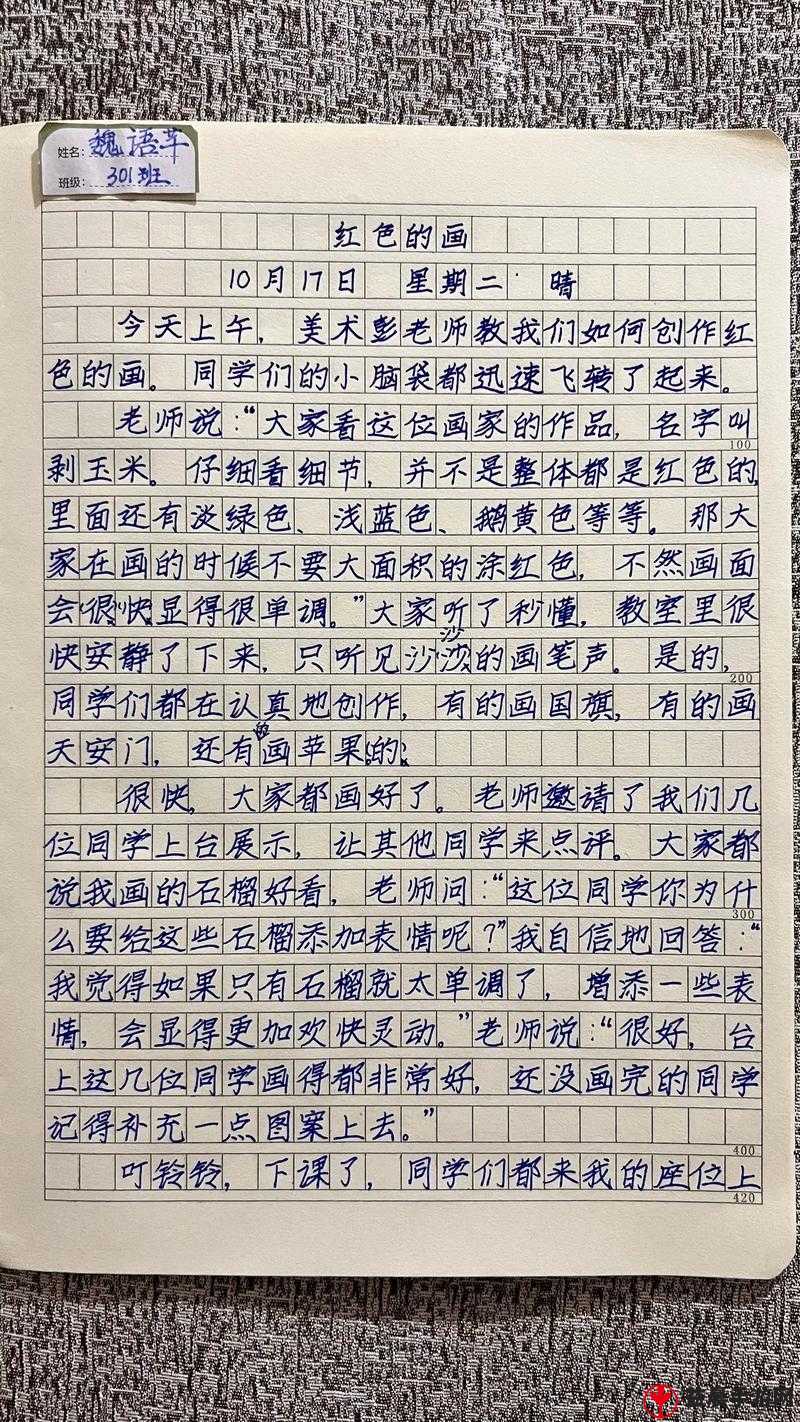 姓名：魏语苹
班级：301班
红色的画
10月17日 星期二 晴
今天上午，美术彭老师教我们如何创作红
色的画。同学们的小脑袋都迅速飞转了起来。
老师说：“大家看这位画家的作品，名字叫
100
剥玉米。仔细看细节，并不是整体都是红色的，
里面还有淡绿色、浅蓝色、鹅黄色等等。那大
家在画的时候不要大面积的涂红色，不然画面
会很快显得很单调。”大家听了秒懂，教室里很
快安静了下来，只听见沙沙沙的画笔声。是的，
200
同学们都在认真地创作，有的画国旗，有的画
天安门，还有的画苹果的。
很快，大家都画好了。老师邀请了我们几
位同学上台展示，让其他同学来点评。大家都
说我画的石榴好看，老师问：“这位同学你为什
300
么要给这些石榴添加表情呢？”我自信地回答：“
我觉得如果只有石榴就太单调了，增添一些表
情，会显得更加欢快灵动。”老师说：“很好，台
上这几位同学画得都非常好，还没画完的同学
记得补充一点图案上去。”
400
叮铃铃，下课了，同学们都来我的座位上
420